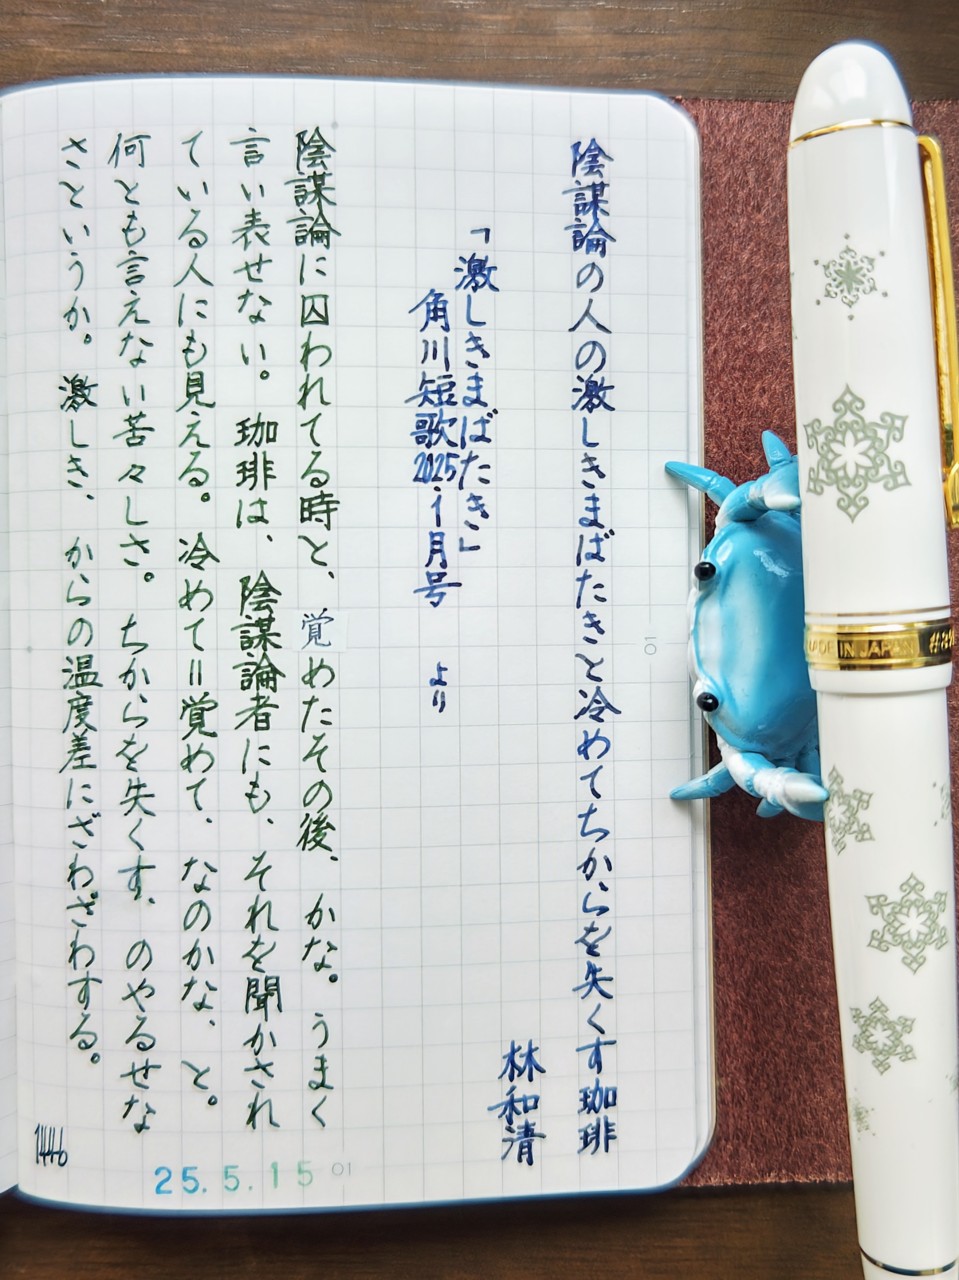 陰謀論の人の激しきまばたきと冷めてちからを失くす珈琲
林和清
「激しきまばたき」
角川短歌2025.1月号 より
陰謀論に囚われてる時と、覚めたその後、かな。うまく
言い表せない。珈琲は、陰謀論者にも、それを聞かされ
ている人にも見える。冷めて=覚めて、なのかな、と。
何とも言えない苦々しさ。ちからを失くす、のやるせな
さというか。激しき、からの温度差にざわざわする。
1446
25.5.15
01
10
MADE IN JAPAN